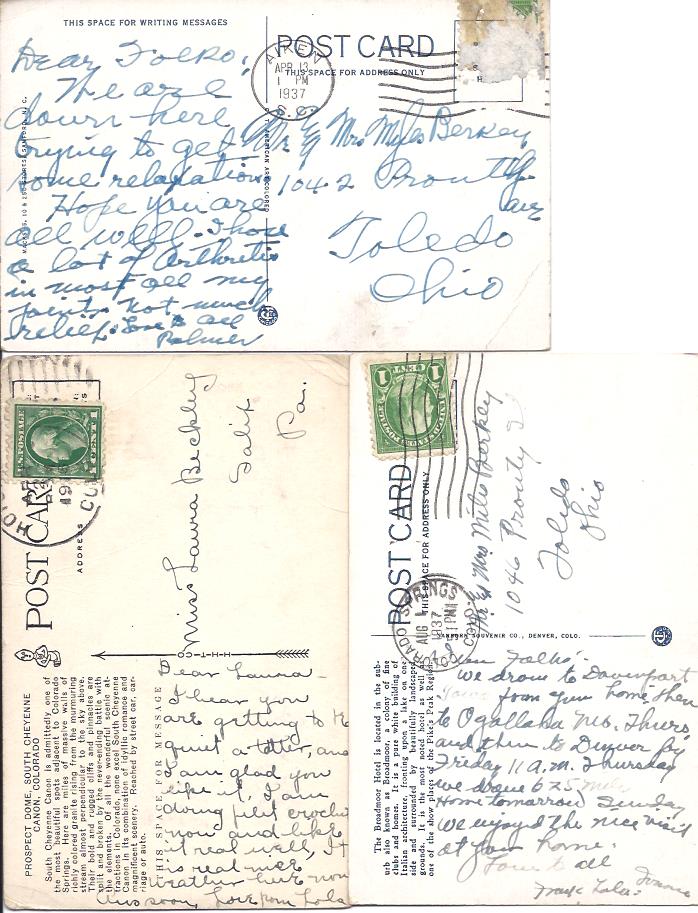 THIS SPACE FOR WRITING MESSAGES
POST CARD
THIS SPACE FOR ADDRESS ONLY
AIKEN
APR 13
1 PM
1937
S.C.
Dear Folks,
We are
down here
trying to get
some relaxation
Hope you are
all well. I have
a lot of Arthritis
in most all my
joints. Not much
relief. Love to all
Palmer
Mr & Mrs Myles Berkey
1042 Prouty
ave
Toledo
Ohio
U.S. POSTAGE
1 CENT 1
POST CARD
ADDRESS
Miss Laura Beckley
Salix
Pa.
PROSPECT DOME, SOUTH CHEYENNE
CANON, COLORADO
South Cheyenne Canon is admittedly one of
the most beautiful spots adjacent to Colorado
Springs. Here are miles of massive walls of
richly colored granite rising from the murmuring
stream almost perpendicular to the sky above.
Their bold and rugged cliffs and pinnacles are
split and broken by the never-ending battle with
the elements. Of all the wonderful scenic at-
tractions in Colorado, none excel South Cheyenne
Canon in its combination of idyllic romance and
magnificent scenery. Reached by street car, car-
riage or auto.
THIS SPACE FOR MESSAGE
H-H-T-CO.
Dear Laura
I hear you
are getting to be
quiet a tatter, and
I am glad you
like it. I am
doing that crochet
you and like
it real well. It
is real nice
weather here now
Ans soon, Love from Lola
POST CARD
THIS SPACE FOR ADDRESS ONLY
COLORADO SPRINGS
AUG 1
1 PM
1937
COLO.
Mr & Mrs Miles Berkey
1046 Prouty
Toledo
Ohio
SANBORN SOUVENIR CO., DENVER, COLO.
The Broadmoor Hotel is located in the sub-
urb also known as Broadmoor, a colony of fine
clubs and homes. It is a pure white building of
Italian architecture, fronting upon a lake on one
side and surrounded by beautifully landscaped
grounds. It is the most noted hotel as well as
one of the show places of the Pike's Peak Region.
Dear Folks:
We drove to Davenport
Iowa from your home then
to Ogallala Neb. Thurs
and then to Denver by
Friday 11 A.M. Thursday
we drove
Home tomorrow Sunday
We enjoyed the nice visit
at your home.
all
Lola